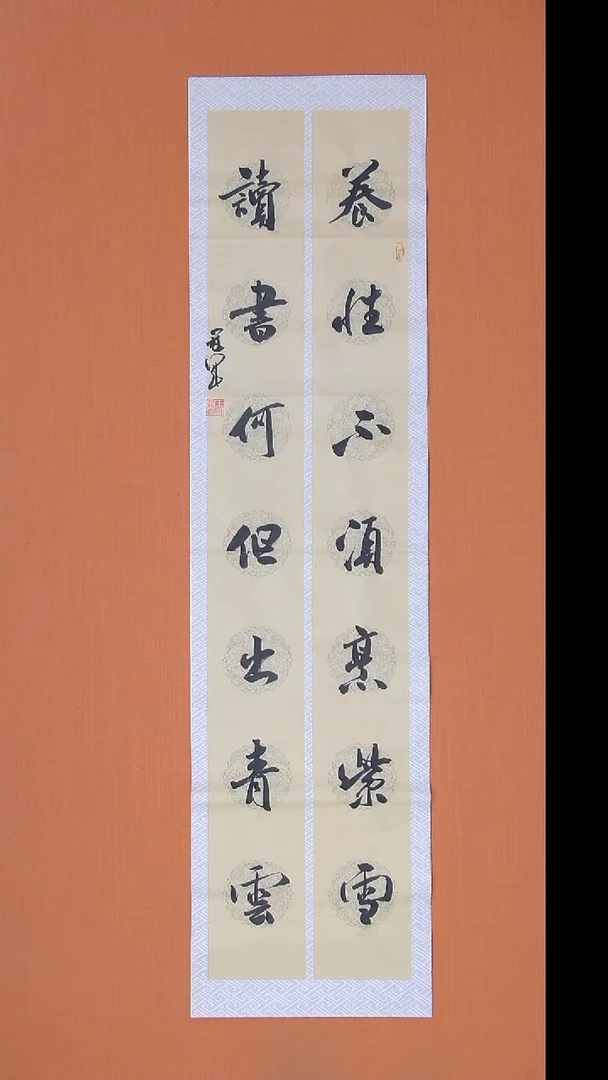 養性不須烹紫雪
讀書何但出青雲